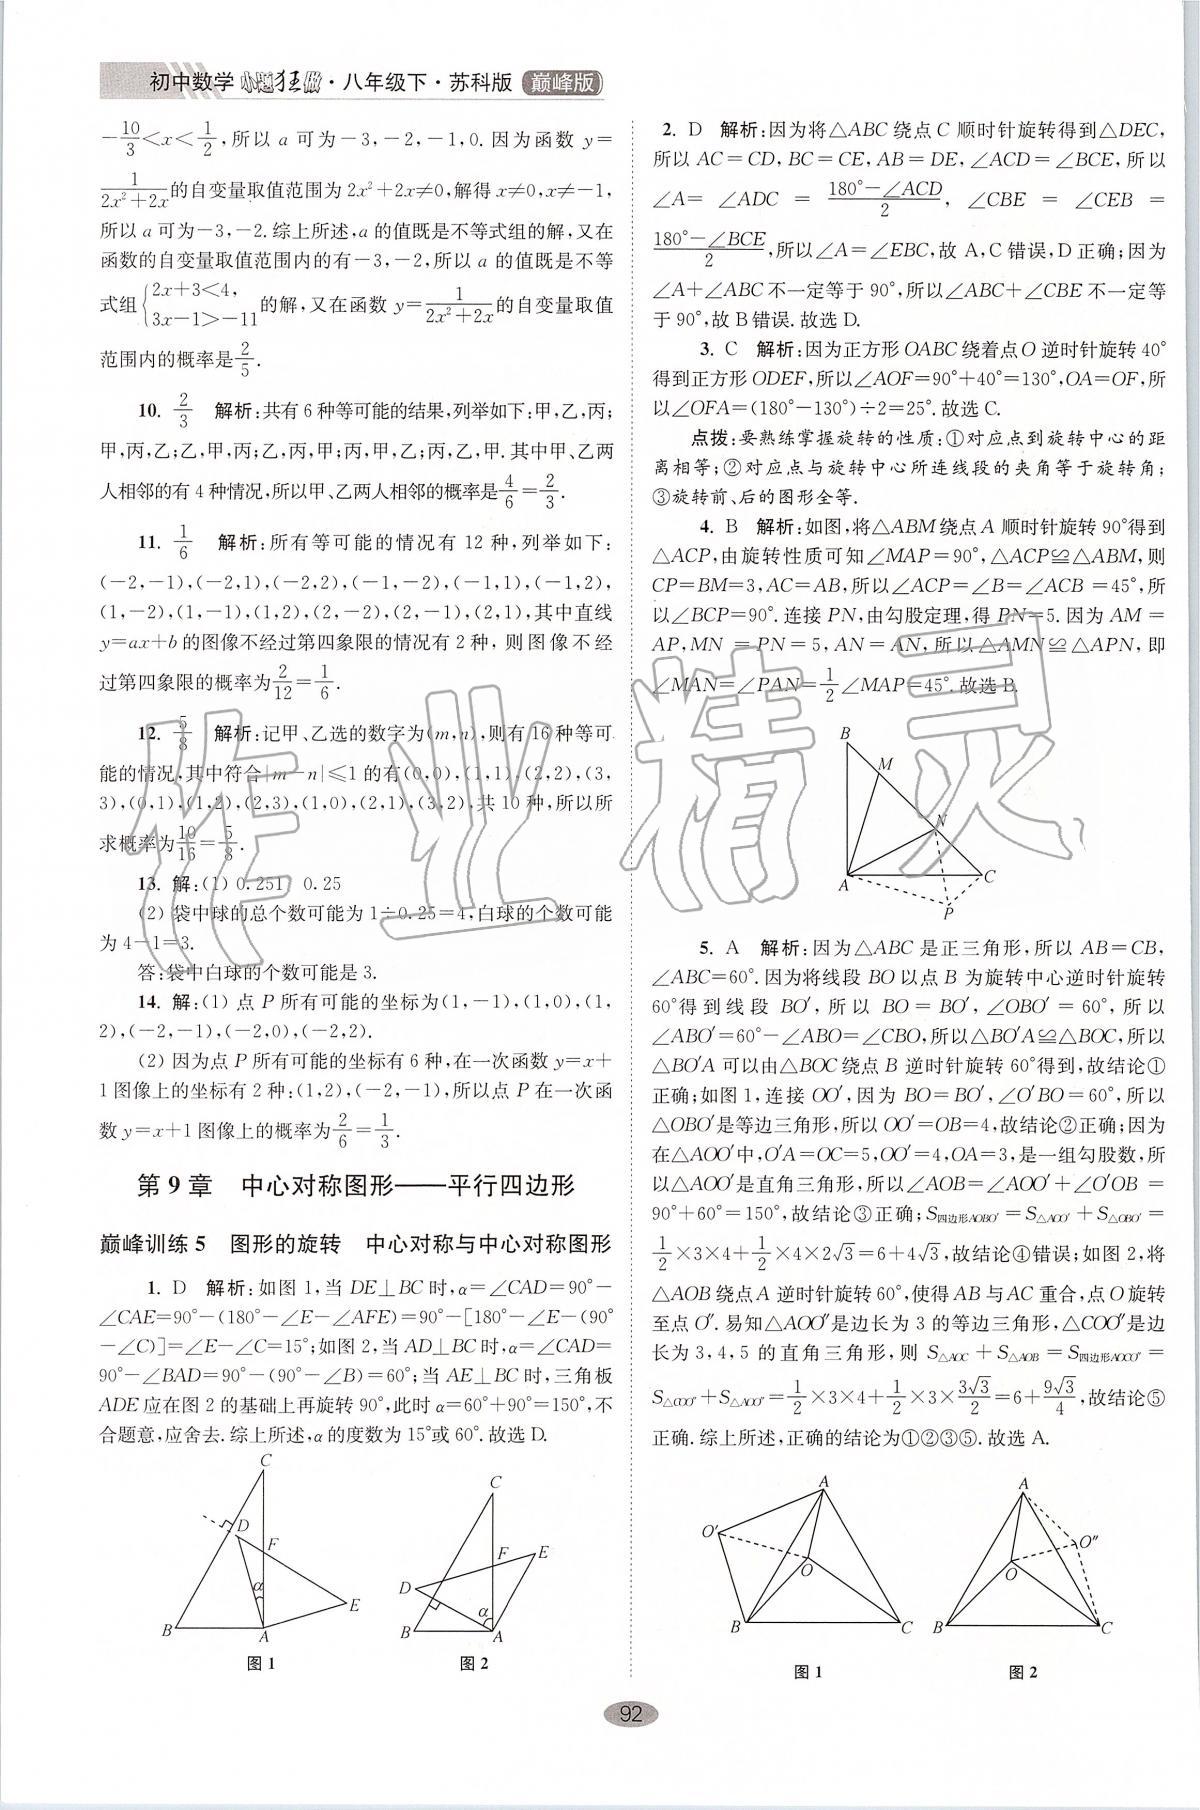 初中数学 小题狂做·八年级下·苏科版 巅峰版
$-\frac{10}{3}<x<\frac{1}{2}$,所以 a 可为－3,－2,－1,0.因为函数 y＝
$\frac{1}{2x^2+2x}$的自变量取值范围为 2x²＋2x≠0,解得 x≠0,x≠－1,
所以 a 可为－3,－2.综上所述,a 的值既是不等式组的解,又在
函数的自变量取值范围内的有－3,－2,所以 a 的值既是不等
式组$\begin{cases}2x+3<4,\\3x-1>-11\end{cases}$的解,又在函数 y＝$\frac{1}{2x^2+2x}$的自变量取值
范围内的概率是$\frac{2}{5}$.
10. $\frac{2}{3}$ 解析:共有 6 种等可能的结果,列举如下:甲,乙,丙;
甲,丙,乙;乙,甲,丙;乙,丙,甲;丙,甲,乙;丙,乙,甲.其中甲、乙两
人相邻的有 4 种情况,所以甲、乙两人相邻的概率是$\frac{4}{6}=\frac{2}{3}$.
11. $\frac{1}{6}$ 解析:所有等可能的情况有 12 种,列举如下:
(－2,－1),(－2,1),(－2,2),(－1,－2),(－1,1),(－1,2),
(1,－2),(1,－1),(1,2),(2,－2),(2,－1),(2,1),其中直线
y＝ax＋b 的图像不经过第四象限的情况有 2 种,则图像不经
过第四象限的概率为$\frac{2}{12}=\frac{1}{6}$.
12. $\frac{5}{8}$ 解析:记甲、乙选的数字为(m,n),则有 16 种等可
能的情况,其中符合|m－n|≤1 的有(0,0),(1,1),(2,2),(3,
3),(0,1),(1,2),(2,3),(1,0),(2,1),(3,2),共 10 种,所以所
求概率为$\frac{10}{16}=\frac{5}{8}$.
13. 解:(1) 0.251 0.25
(2) 袋中球的总个数可能为 1÷0.25＝4,白球的个数可能
为 4－1＝3.
答:袋中白球的个数可能是 3.
14. 解:(1) 点 P 所有可能的坐标为(1,－1),(1,0),(1,
2),(－2,－1),(－2,0),(－2,2).
(2) 因为点 P 所有可能的坐标有 6 种,在一次函数 y＝x＋
1 图像上的坐标有 2 种:(1,2),(－2,－1),所以点 P 在一次函
数 y＝x＋1 图像上的概率为$\frac{2}{6}=\frac{1}{3}$.
第 9 章 中心对称图形——平行四边形
巅峰训练 5 图形的旋转 中心对称与中心对称图形
1. D 解析:如图 1,当 DE⊥BC 时,α＝∠CAD＝90°－
∠CAE＝90°－(180°－∠E－∠AFE)＝90°－[180°－∠E－(90°
－∠C)]＝∠E－∠C＝15°;如图 2,当 AD⊥BC 时,α＝∠CAD＝
90°－∠BAD＝90°－(90°－∠B)＝60°;当 AE⊥BC 时,三角板
ADE 应在图 2 的基础上再旋转 90°,此时 α＝60°＋90°＝150°,不
合题意,应舍去.综上所述,α 的度数为 15°或 60°.故选 D.
C
D
F
α
E
B
A
图 1
C
F
E
D
α
B
A
图 2
2. D 解析:因为将△ABC 绕点 C 顺时针旋转得到△DEC,
所以 AC＝CD,BC＝CE,AB＝DE,∠ACD＝∠BCE,所以
∠A＝∠ADC＝$\frac{180°-∠ACD}{2}$,∠CBE＝∠CEB＝
$\frac{180°-∠BCE}{2}$,所以∠A＝∠EBC,故 A,C 错误,D 正确;因为
∠A＋∠ABC 不一定等于 90°,所以∠ABC＋∠CBE 不一定等
于 90°,故 B 错误.故选 D.
3. C 解析:因为正方形 OABC 绕着点 O 逆时针旋转 40°
得到正方形 ODEF,所以∠AOF＝90°＋40°＝130°,OA＝OF,所
以∠OFA＝(180°－130°)÷2＝25°.故选 C.
点拨:要熟练掌握旋转的性质:①对应点到旋转中心的距
离相等;②对应点与旋转中心所连线段的夹角等于旋转角;
③旋转前、后的图形全等.
4. B 解析:如图,将△ABM 绕点 A 顺时针旋转 90°得到
△ACP,由旋转性质可知∠MAP＝90°,△ACP≌△ABM,则
CP＝BM＝3,AC＝AB,所以∠ACP＝∠B＝∠ACB＝45°,所
以∠BCP＝90°.连接 PN,由勾股定理,得 PN＝5.因为 AM＝
AP,MN＝PN＝5,AN＝AN,所以△AMN≌△APN,即
∠MAN＝∠PAN＝$\frac{1}{2}$∠MAP＝45°.故选 B.
B
M
N
A
C
P
5. A 解析:因为△ABC 是正三角形,所以 AB＝CB,
∠ABC＝60°.因为将线段 BO 以点 B 为旋转中心逆时针旋转
60°得到线段 BO′,所以 BO＝BO′,∠OBO′＝60°,所以
∠ABO′＝60°－∠ABO＝∠CBO,所以△BO′A≌△BOC,所以
△BO′A 可以由△BOC 绕点 B 逆时针旋转 60°得到,故结论①
正确;如图 1,连接 OO′,因为 BO＝BO′,∠O′BO＝60°,所以
△OBO′是等边三角形,所以 OO′＝OB＝4,故结论②正确;因为
在△AOO′中,O′A＝OC＝5,OO′＝4,OA＝3,是一组勾股数,所
以△AOO′是直角三角形,所以∠AOB＝∠AOO′＋∠O′OB＝
90°＋60°＝150°,故结论③正确;$S_{四边形AOBO′}=S_{△AOO′}+S_{△OBO′}=$
$\frac{1}{2}×3×4+\frac{1}{2}×4×2\sqrt{3}=6+4\sqrt{3}$,故结论④错误;如图 2,将
△AOB 绕点 A 逆时针旋转 60°,使得 AB 与 AC 重合,点 O 旋转
至点 O″.易知△AOO″是边长为 3 的等边三角形,△COO″是边
长为 3,4,5 的直角三角形,则 $S_{△AOC}+S_{△AOB}=S_{四边形AOCO″}=$
$S_{△COO″}+S_{△AOO″}=\frac{1}{2}×3×4+\frac{1}{2}×3×\frac{3\sqrt{3}}{2}=6+\frac{9\sqrt{3}}{4}$,故结论⑤
正确.综上所述,正确的结论为①②③⑤.故选 A.
A
O′
O
B
C
图 1
A
O″
O
B
C
图 2
作业精灵
92